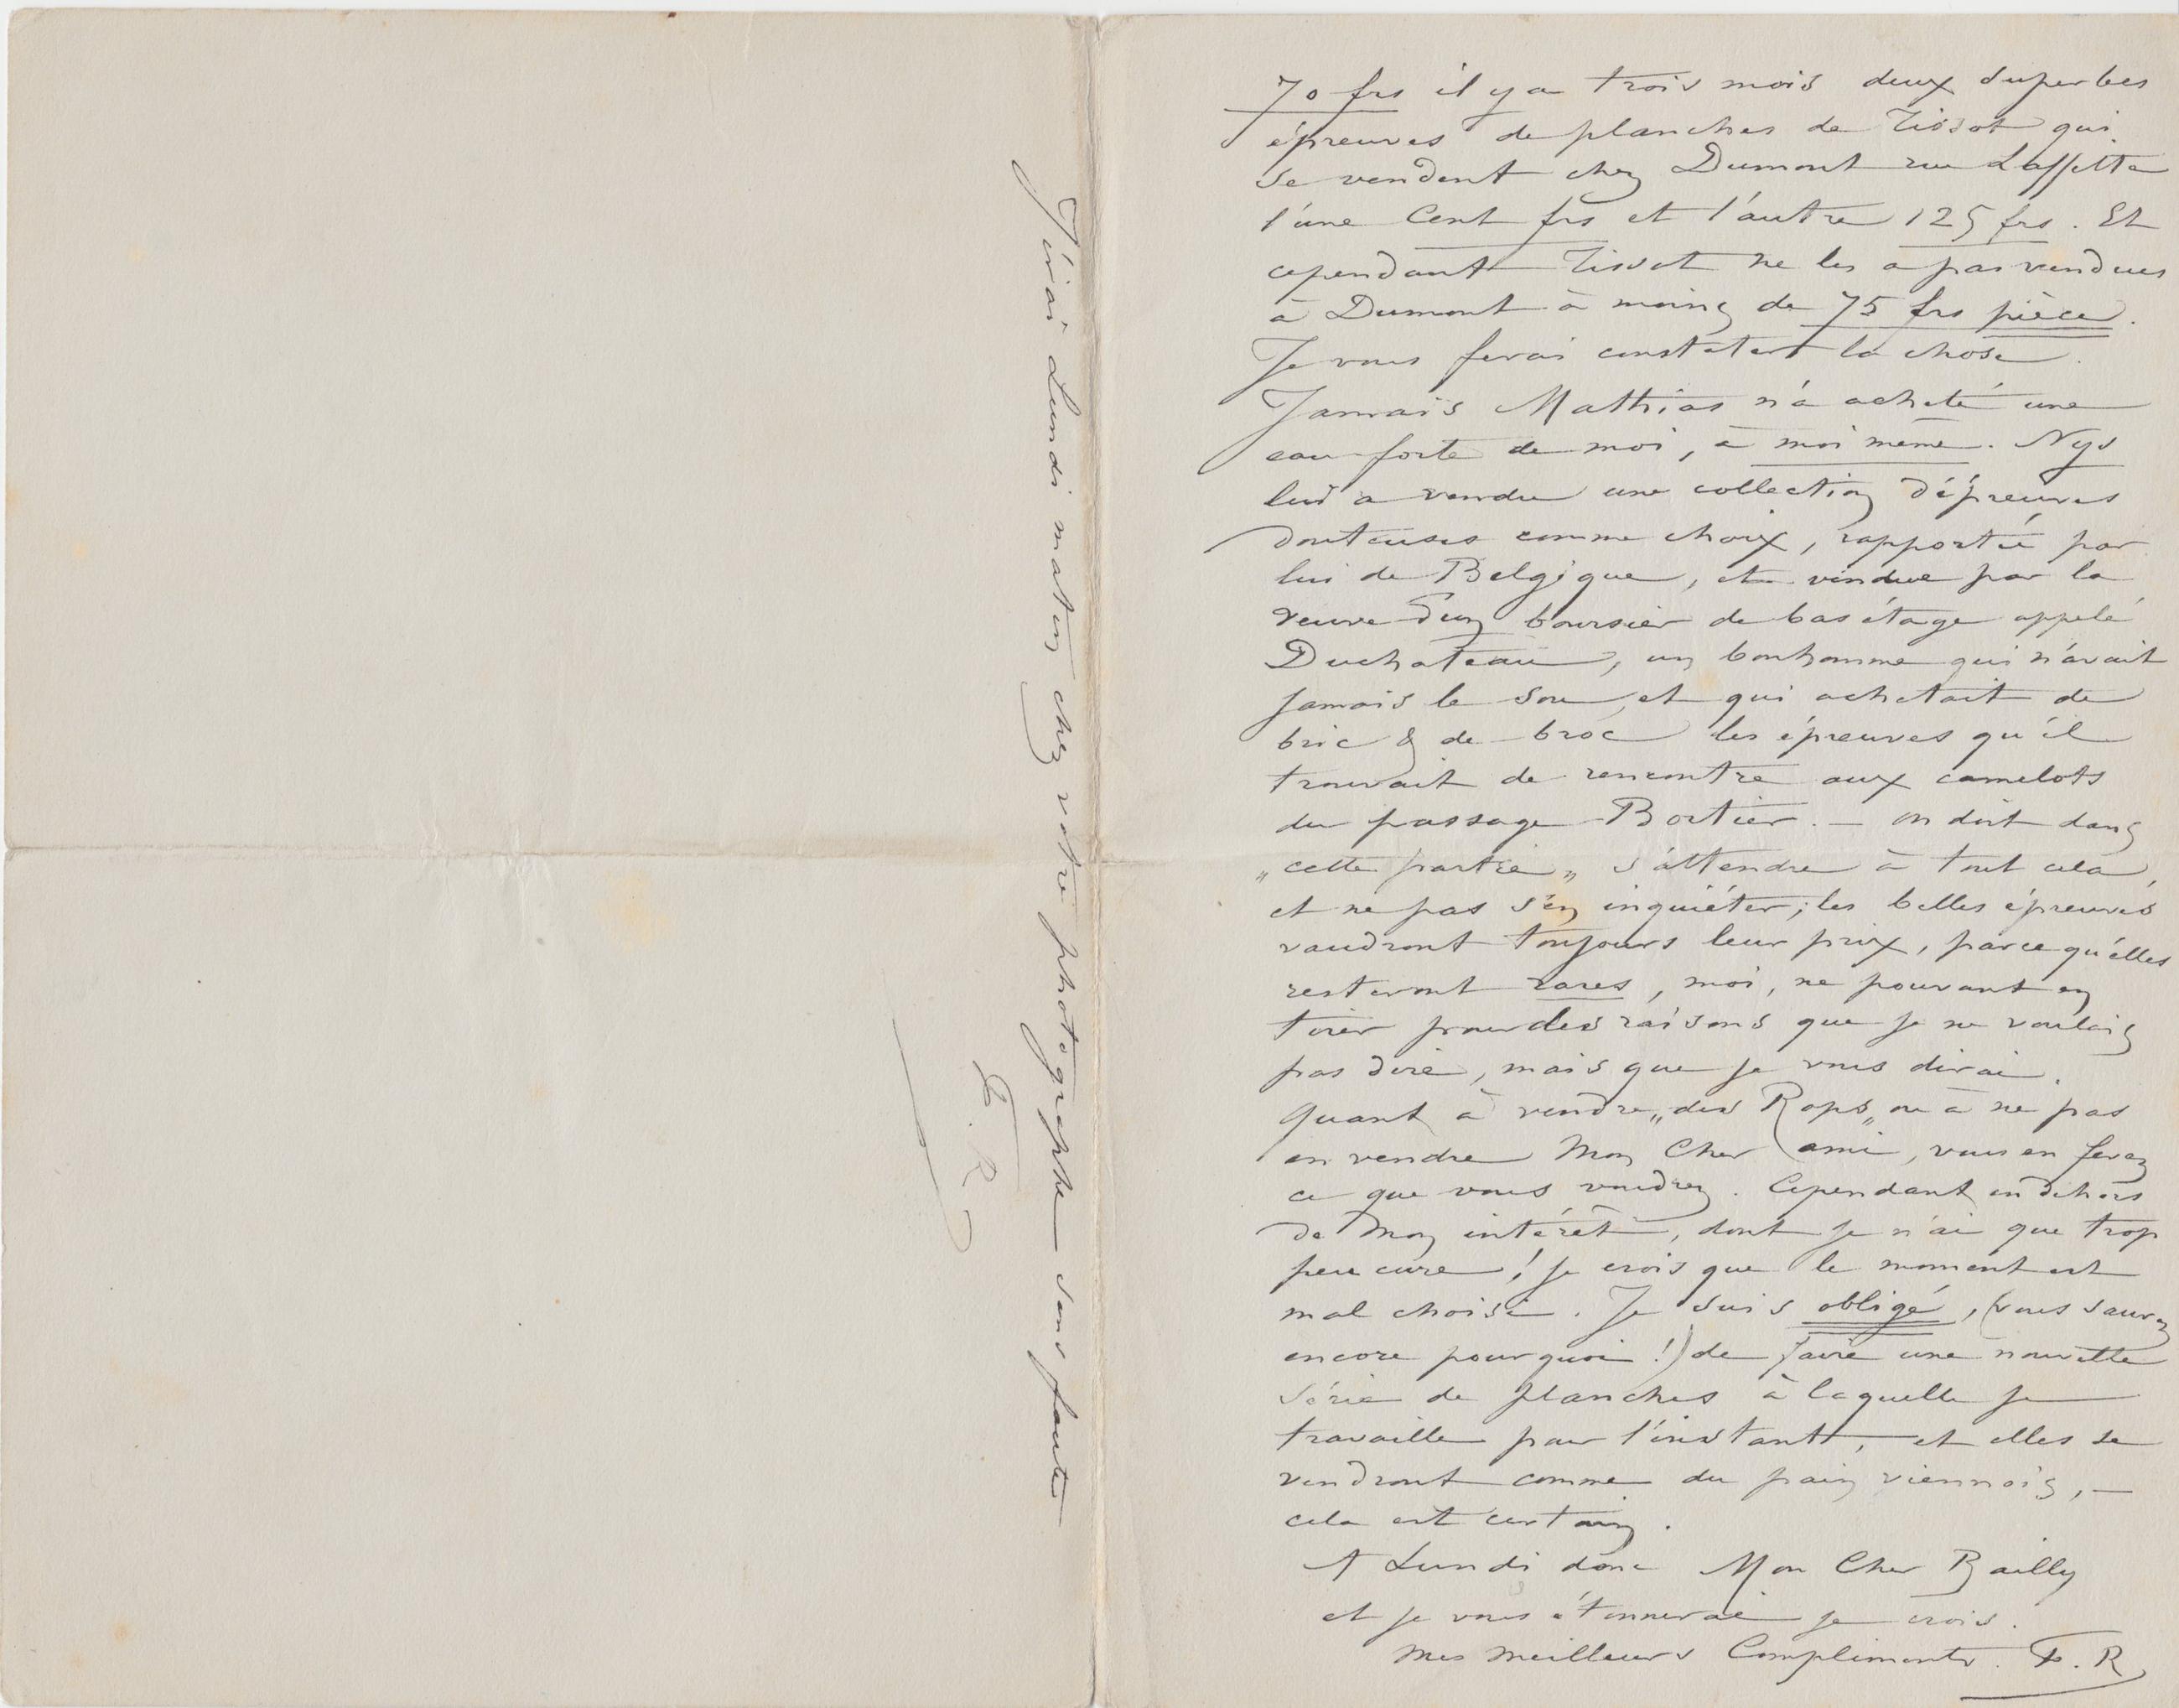 70 frs il y a trois mois deux superbes
épreuves de planches de Tissot qui
se vendent chez Dumont rue Laffitte
l'une Cent frs et l'autre 125 frs. Et
cependant Tissot ne les a pas vendues
à Dumont à moins de 75 frs pièce.
Je vous ferai constater la chose.
Jamais Mathias n'a acheté une
eau-forte de moi, à moi même. Nys
lui a vendu une collection d'épreuves
douteuses comme choix, rapportée par
lui de Belgique, et vendue par la
veuve d'un boursier de bas étage appelé
Duchateau, un bonhomme qui n'avait
jamais le sou, et qui achetait de
bric & de broc les épreuves qu'il
trouvait de rencontre aux camelots
du passage Bortier. — on doit dans
„cette partie„ s'attendre à tout cela,
et ne pas s'en inquiéter; les belles épreuves
vaudront toujours leur prix, parce qu'elles
resteront rares, moi, ne pouvant en
tirer pour des raisons que je ne voulais
pas dire, mais que je vous dirai.
Quant à vendre „des Rops„ ou à ne pas
en vendre Mon Cher ami, vous en ferez
ce que vous voudrez. Cependant en dehors
de mon intérêt, dont je n'ai que trop
peu cure! je crois que le moment est
mal choisi. Je suis obligé, (vous saurez
encore pourquoi!) de faire une nouvelle
série de planches à laquelle je
travaille pour l'instant, et elles se
vendront comme du pain viennois, —
cela est certain.
A Lundi donc Mon Cher Bailly
et je vous étonnerai je crois.
Mes meilleurs Compliments. F. R
J'irai Lundi matin chez votre photographe sans faute
F. R